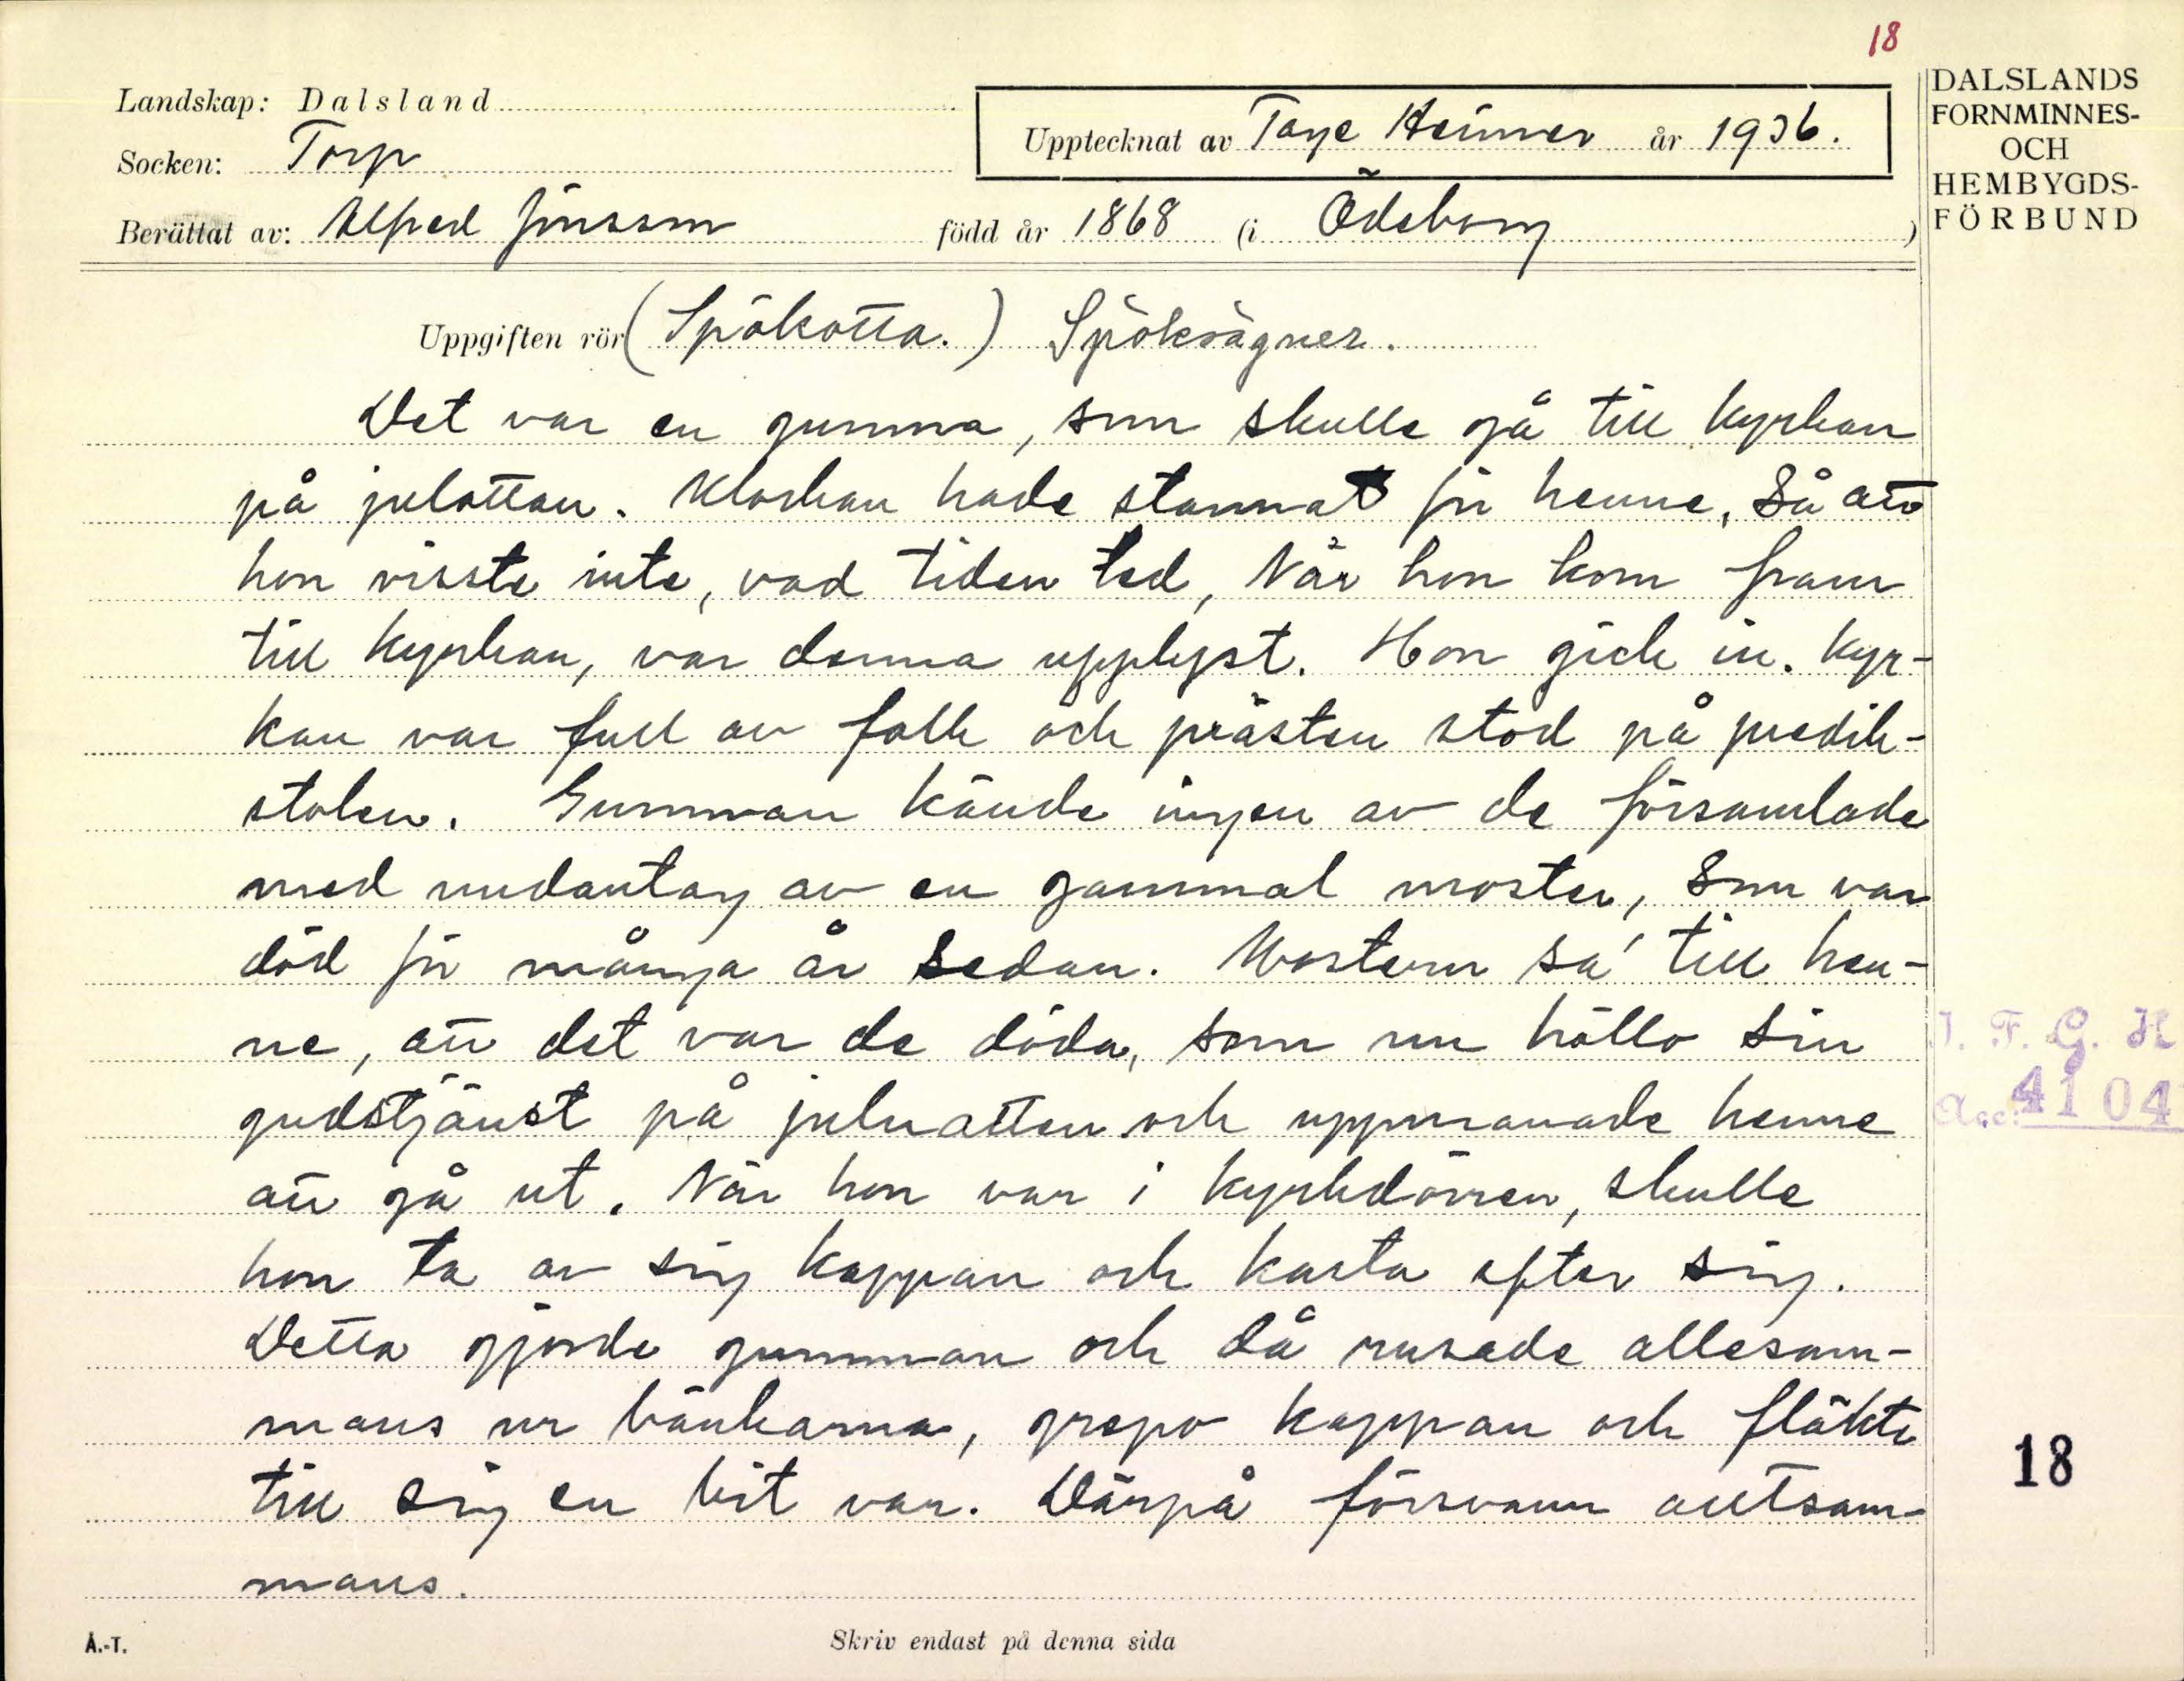 18
Landskap: Dalsland
Upptecknat av Tage Heimer år 1936.
Socken: Torp
Berättat av: Alfred Jönsson född år 1868 (i Ödeborg )
DALSLANDS
FORNMINNES-
OCH
HEMBYGDS-
FÖRBUND
Uppgiften rör (Spökotta.) Spöksägner.
Det var en gumma, som skulle gå till kyrkan
på julottan. Klockan hade stannat för henne, så att
hon visste inte, vad tiden led, När hon kom fram
till kyrkan, var denna upplyst. Hon gick in. Kyr-
kan var full av folk och prästen stod på predik-
stolen. Gumman kände ingen av de församlade
med undantag av en gammal moster, som var
död för många år sedan. Mostern sa' till hen-
ne, att det var de döda, som nu höllo sin
gudstjänst på julnatten och uppmanade henne
att gå ut. När hon var i kyrkdörren, skulle
hon ta av sig kappan och kasta efter sig.
Detta gjorde gumman och då rusade allesam-
mans ur bänkarna, grepo kappan och fläkte
till sig en bit var. Därpå försvann alltsam-
mans.
I. F. G. H
Acc. 4104
18
Å.-T.
Skriv endast på denna sida